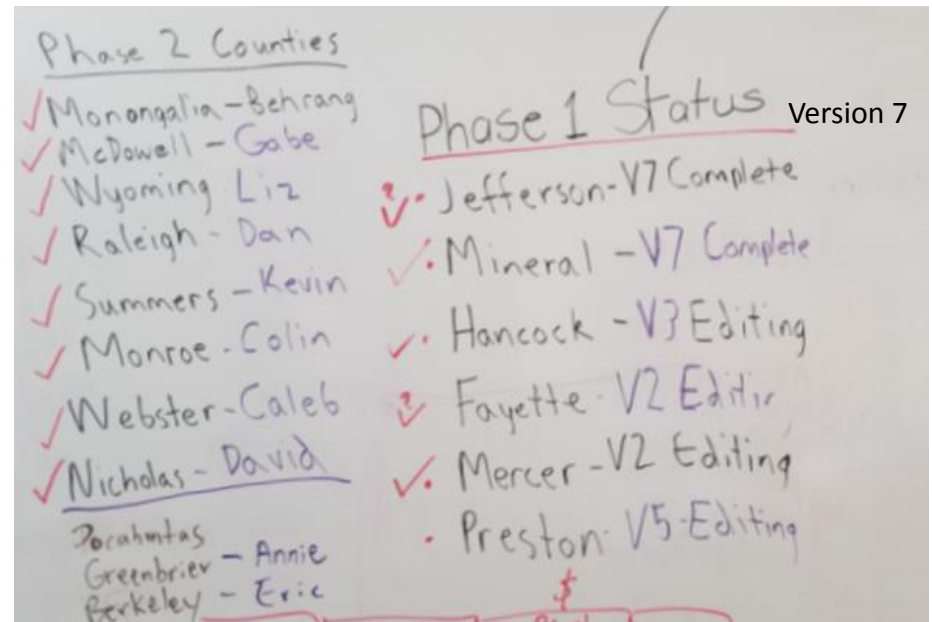 Phase 2 Counties
✓ Monongalia - Behrang
✓ McDowell - Gabe
✓ Wyoming Liz
✓ Raleigh - Dan
✓ Summers - Kevin
✓ Monroe - Colin
✓ Webster - Caleb
✓ Nicholas - David
Pocahontas
Greenbrier - Annie
Berkeley - Eric
Phase 1 Status Version 7
? ✓ • Jefferson - V7 Complete
✓ • Mineral - V7 Complete
✓ • Hancock - V3 Editing
? ✓ Fayette - V2 Editin
✓ • Mercer - V2 Editing
• Preston - V5 - Editing
$